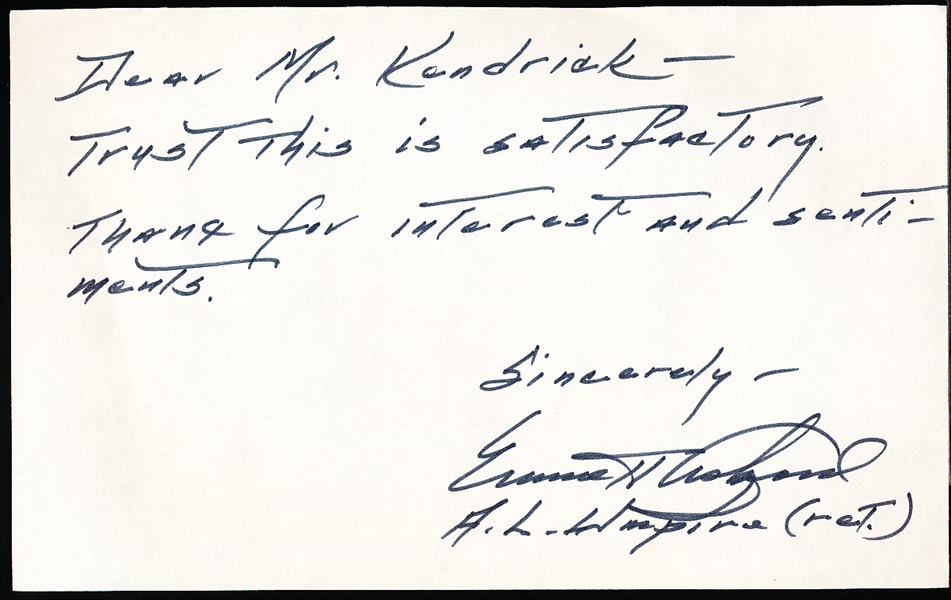 Dear Mr. Kendrick —
Trust this is satisfactory.
Thank for interest and senti-
ments.
Sincerely —
Emmett Ashford
A.L. Umpire (ret.)